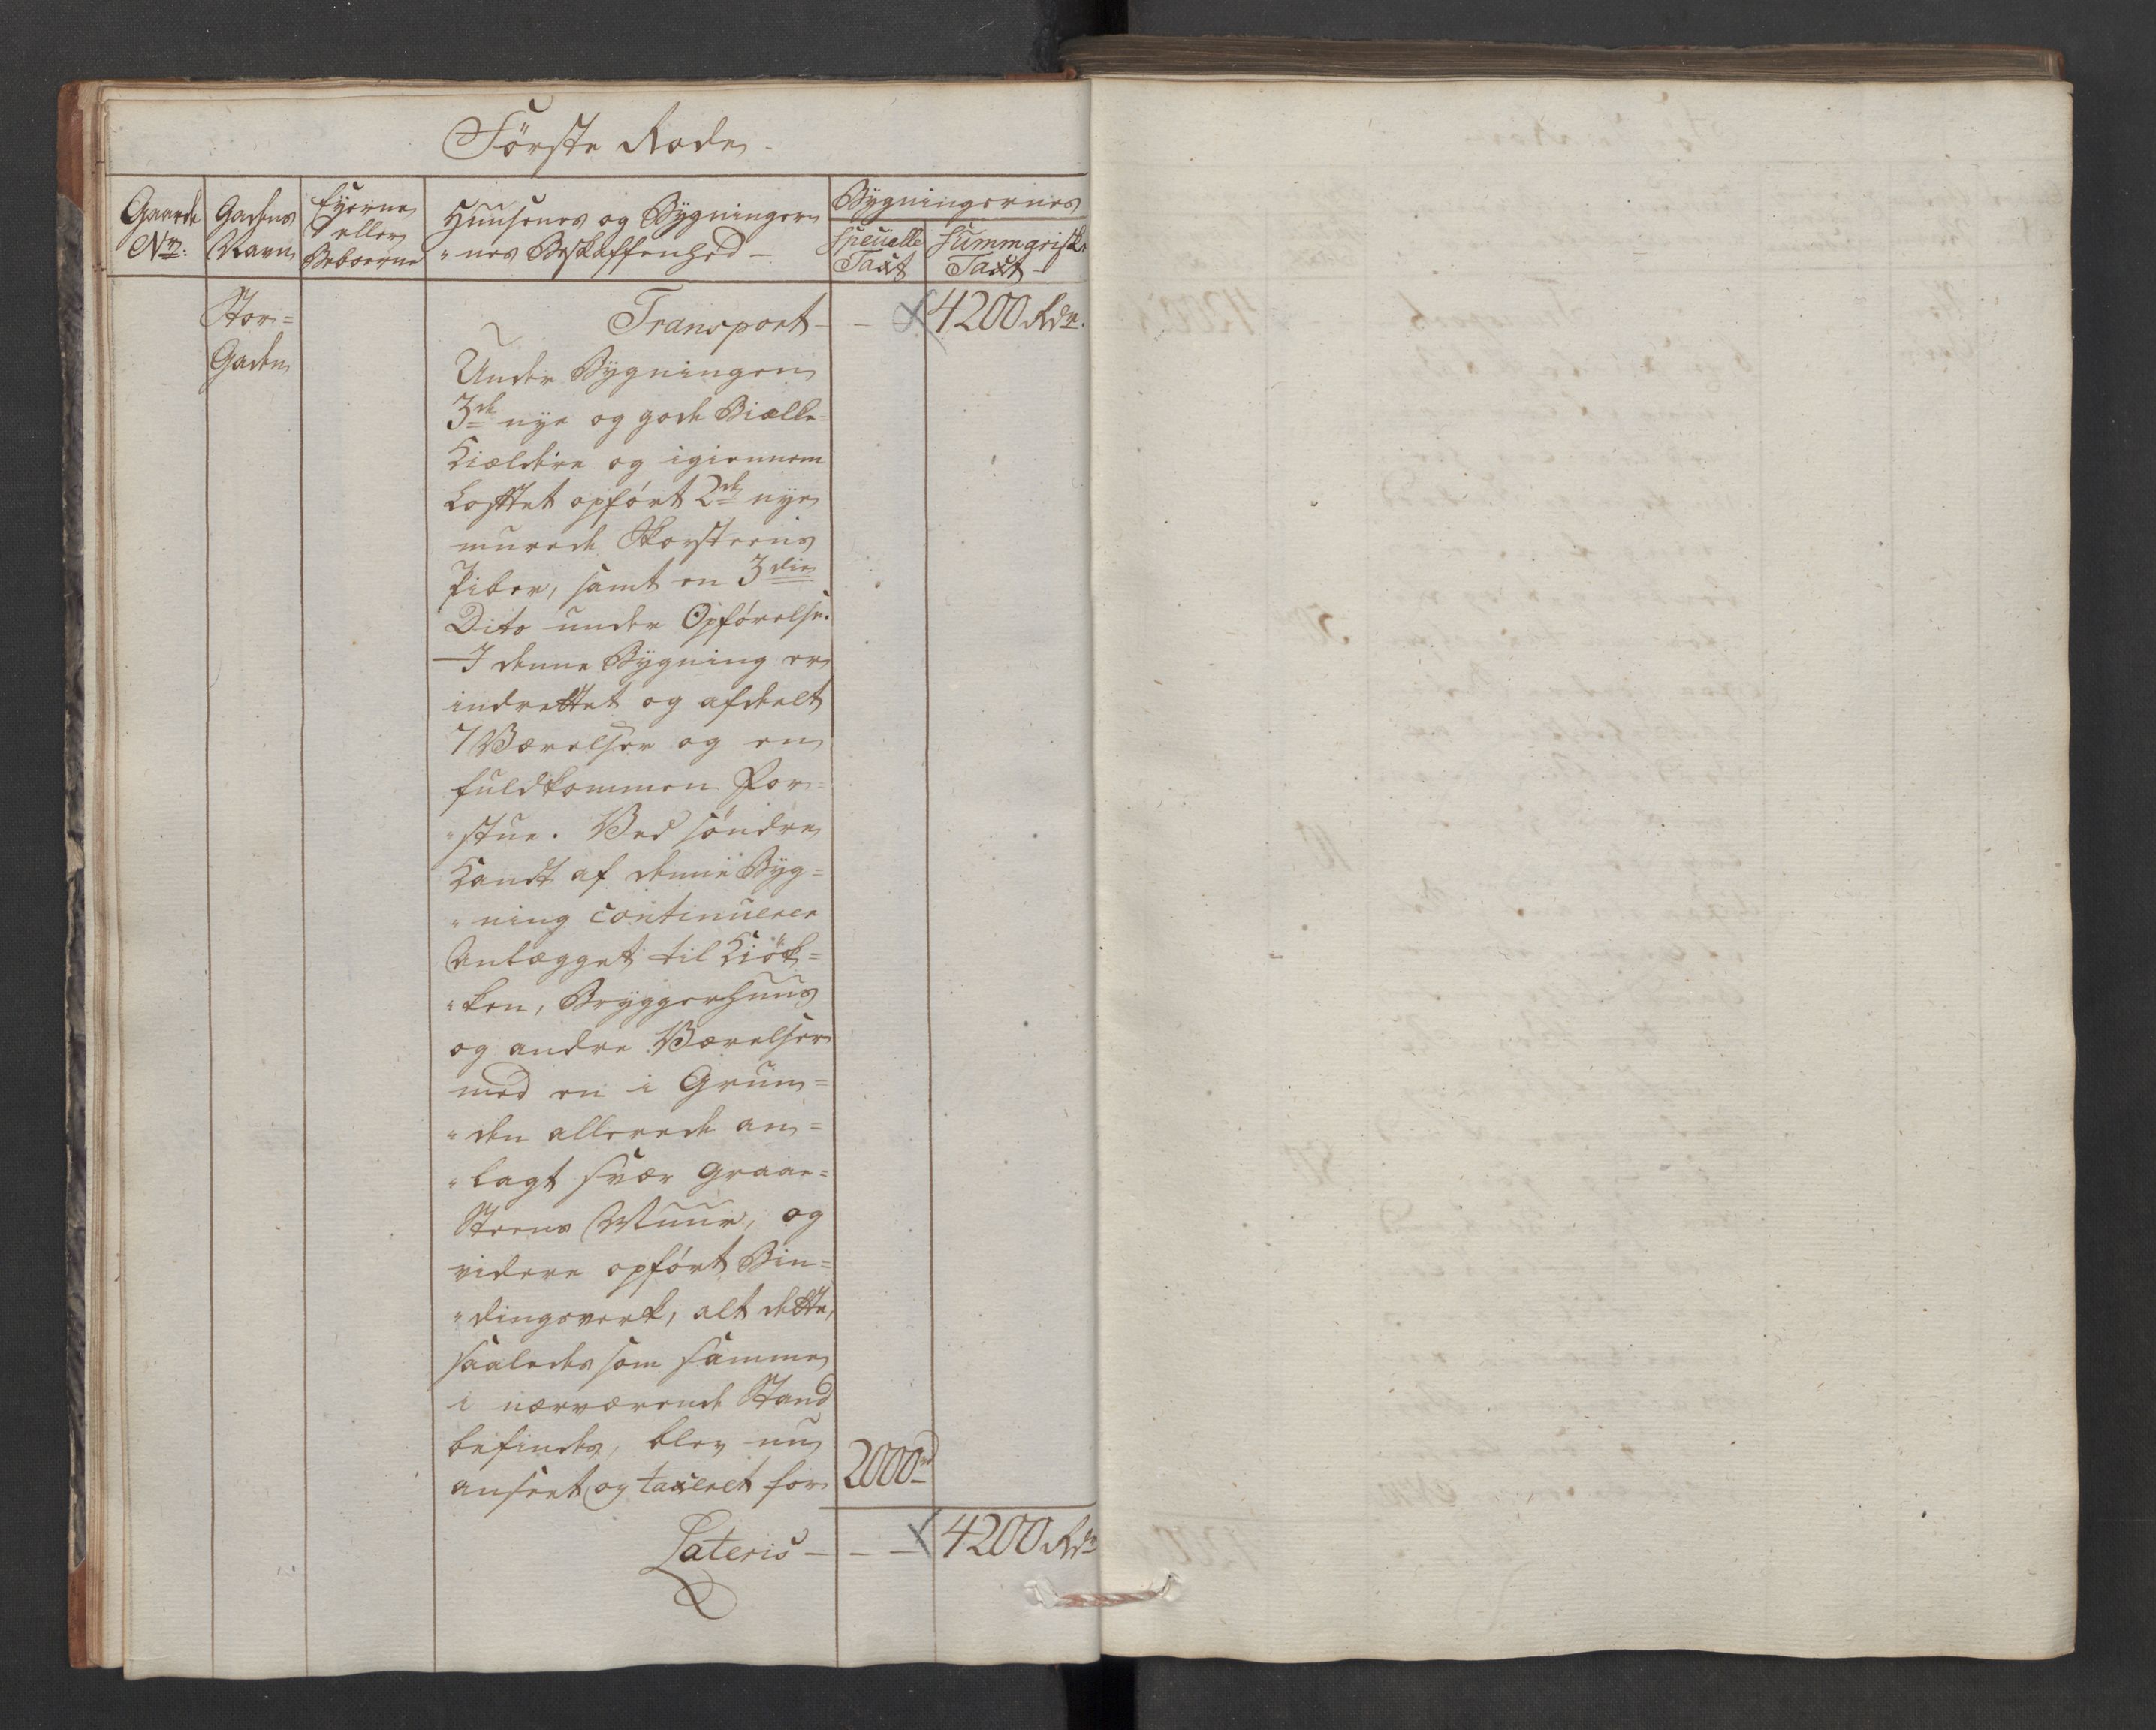 Første Rode
Gaarde Gadens Eyerne Huusenes og Bygninger= Bygningernes
Nr: Navn eller Beboerne "nes Beskaffenhed - Specielle Taxt Summariske Taxt -
Stor= Transport - - 4200 Rdr.
Gaden
Under Bygningen
3de nye og gode Bielke
Kieldere og igiennem
Lofttet opført 2de nye
murede Skorsteens
Piber, samt en 3die
Dito under Opførelse.
- I denne Bygning er
indrettet og afdeelt
7 Værelser og en
fuldkommen For=
"stue. Ved søndre
Kandt af denne Byg=
"ning continuerer
Anlægget til Kiøk=
"ken, Bryggerhuus
og andre Værelser
med en i Grun=
"den allerede an=
"lagt svær Graae=
Steens Muur, og
videre opført Bin=
"dingsverk, alt dette,
saaledes som samme
i nærværende Stand
befindes, blev nu
anseet og taxeret for 2000 rd
Lateris - - - 4200 Rdr